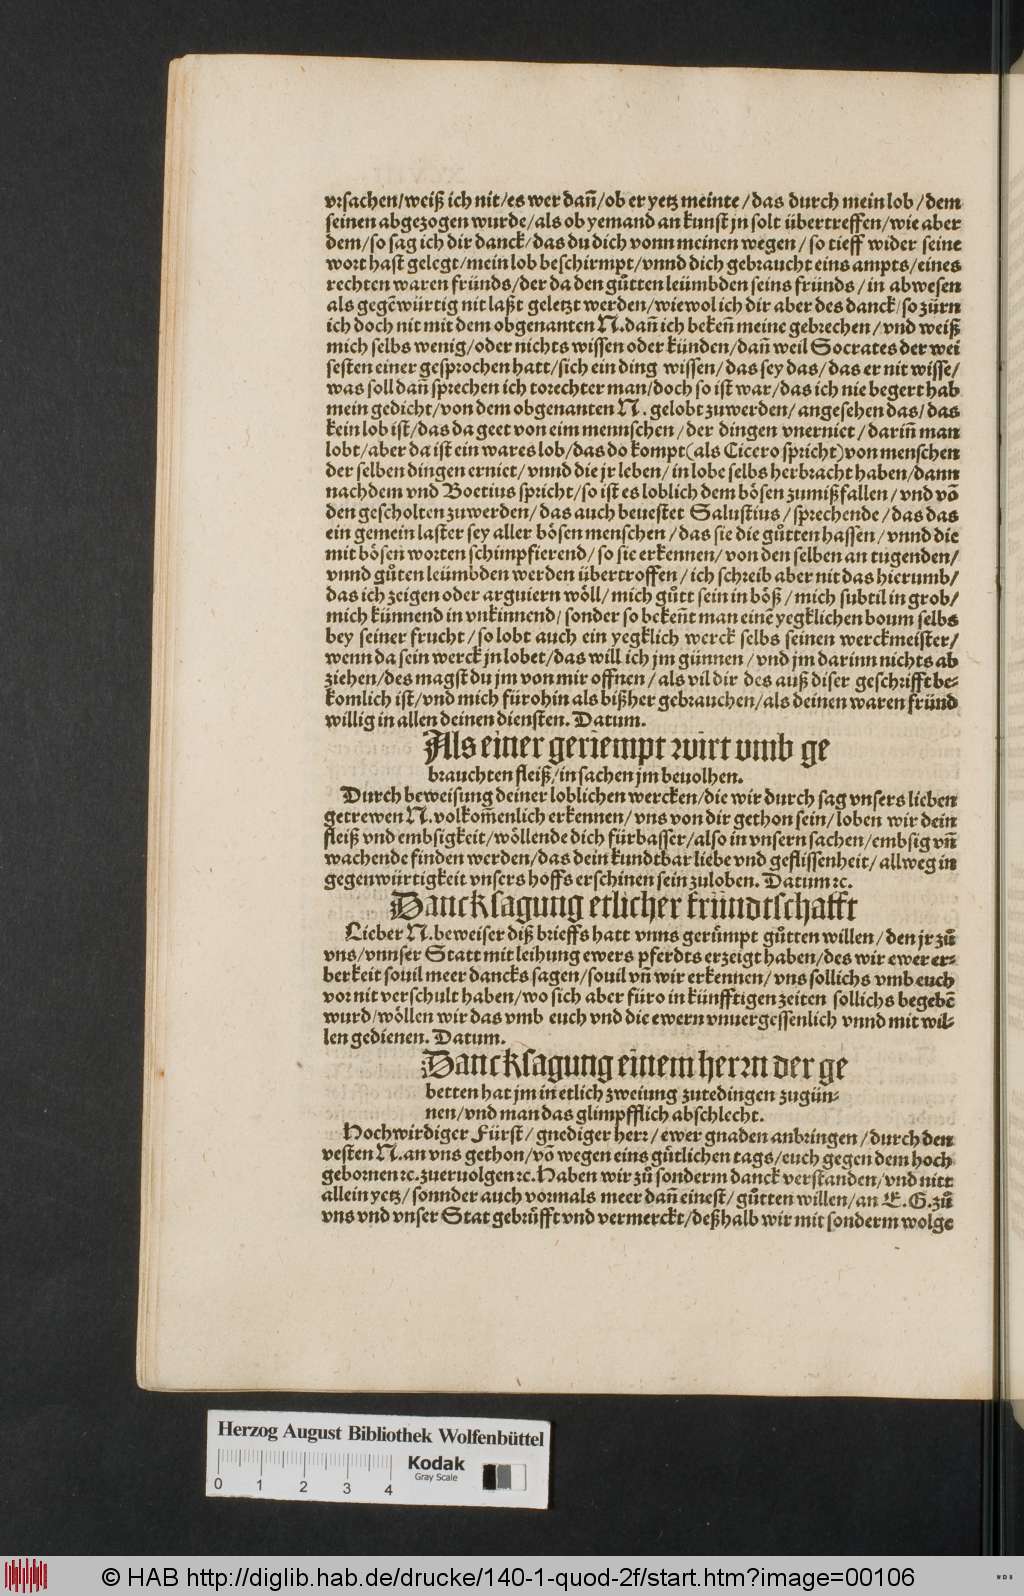 vrsachen/weiß ich nit/es wer dañ/ob er yetz meinte/das durch mein lob/dem
seinen abgezogen wurde/als ob yemand an kunst jn solt übertreffen/wie aber
dem/so sag ich dir danck/das du dich vonn meinen wegen/so tieff wider seine
wort hast gelegt/mein lob beschirmpt/vnnd dich gebraucht eins ampts/eines
rechten waren fründs/der da den gůtten leümbden seins fründs/in abwesen
als gegẽwürtig nit laßt geletzt werden/wiewol ich dir aber des danck/so zürn
ich doch nit mit dem obgenanten N.dañ ich bekeñ meine gebrechen/vnd weiß
mich selbs wenig/oder nichts wissen oder künden/dañ weil Socrates der wei
sesten einer gesprochen hatt/sich ein ding wissen/das sey das/das er nit wisse/
was soll dañ sprechen ich torechter man/doch so ist war/das ich nie begert hab
mein gedicht/von dem obgenanten N. gelobt zuwerden/angesehen das/das
kein lob ist/das da geet von eim mennschen/der dingen vnerniet/dariñ man
lobt/aber da ist ein wares lob/das do kompt(als Cicero spricht)von menschen
der selben dingen erniet/vnnd die jr leben/in lobe selbs herbracht haben/dann
nachdem vnd Boetius spricht/so ist es loblich dem bösen zumißfallen/vnd võ
den gescholten zuwerden/das auch beuestet Salustius/sprechende/das das
ein gemein laster sey aller bösen menschen/das sie die gůtten hassen/vnnd die
mit bösen worten schimpfierend/so sie erkennen/von den selben an tugenden/
vnnd gůten leümbden werden übertroffen/ich schreib aber nit das hierumb/
das ich zeigen oder arguiern wöll/mich gůtt sein in böß/mich subtil in grob/
mich künnend in vnkinnend/sonder so bekeñt man einẽ yegklichen boum selbs
bey seiner frucht/so lobt auch ein yegklich werck selbs seinen werckmeister/
wenn da sein werck jn lobet/das will ich jm günnen/vnd jm darinn nichts ab
ziehen/des magst du jm von mir offnen/als vil dir des auß diser geschrifft be-
komlich ist/vnd mich fürohin als bißher gebrauchen/als deinen waren fründ
willig in allen deinen diensten. Datum.
Als einer geriempt wirt vmb ge
brauchten fleiß/in sachen jm beuolhen.
Durch beweisung deiner loblichen wercken/die wir durch sag vnsers lieben
getrewen N.volkom̃enlich erkennen/vns von dir gethon sein/loben wir dein
fleiß vnd embsigkeit/wöllende dich fürbasser/also in vnsern sachen/embsig vñ
wachende finden werden/das dein kundtbar liebe vnd geflissenheit/allweg in
gegenwürtigkeit vnsers hoffs erschinen sein zuloben. Datum ꝛc.
Dancksagung etlicher fründtschafft
Lieber N.beweiser diß brieffs hatt vnns gerůmpt gůtten willen/den jr zů
vns/vnnser Statt mit leihung ewers pferdts erzeigt haben/des wir ewer er-
berkeit souil meer dancks sagen/souil vñ wir erkennen/vns sollichs vmb euch
vor nit verschult haben/wo sich aber füro in künfftigen zeiten sollichs begebẽ
wurd/wöllen wir das vmb euch vnd die ewern vnuergessenlich vnnd mit wil-
len gedienen. Datum.
Dancksagung einem herrn der ge
betten hat jm in etlich zweiung zutedingen zugün-
nen/vnd man das glimpfflich abschlecht.
Hochwirdiger Fürst/gnediger herr/ewer gnaden anbringen/durch den
vesten N.an vns gethon/võ wegen eins gůtlichen tags/euch gegen dem hoch
gebornen ꝛc.zueruolgen ꝛc.Haben wir zů sonderm danck verstanden/vnd nitt
allein yetz/sonnder auch vormals meer dañ einest/gůtten willen/an E.G.zů
vns vnd vnser Stat gebrůfft vnd vermerckt/deßhalb wir mit sonderm wolge
Herzog August Bibliothek Wolfenbüttel
Kodak
Gray Scale
0 1 2 3 4
© HAB http://diglib.hab.de/drucke/140-1-quod-2f/start.htm?image=00106